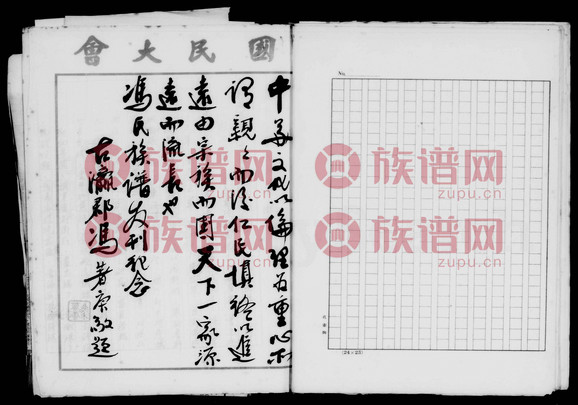 國民大會
中華文化以倫理為重心所
謂親々而後仁民慎終以追
遠由宗族而國天下一家源
遠而流長也
馮氏族譜發刊紀念
古瀛郡馮著敬題
No.
(24×25)
族谱网
zupu.cn
族谱网
zupu.cn
族谱网
zupu.cn
族谱网
zupu.cn